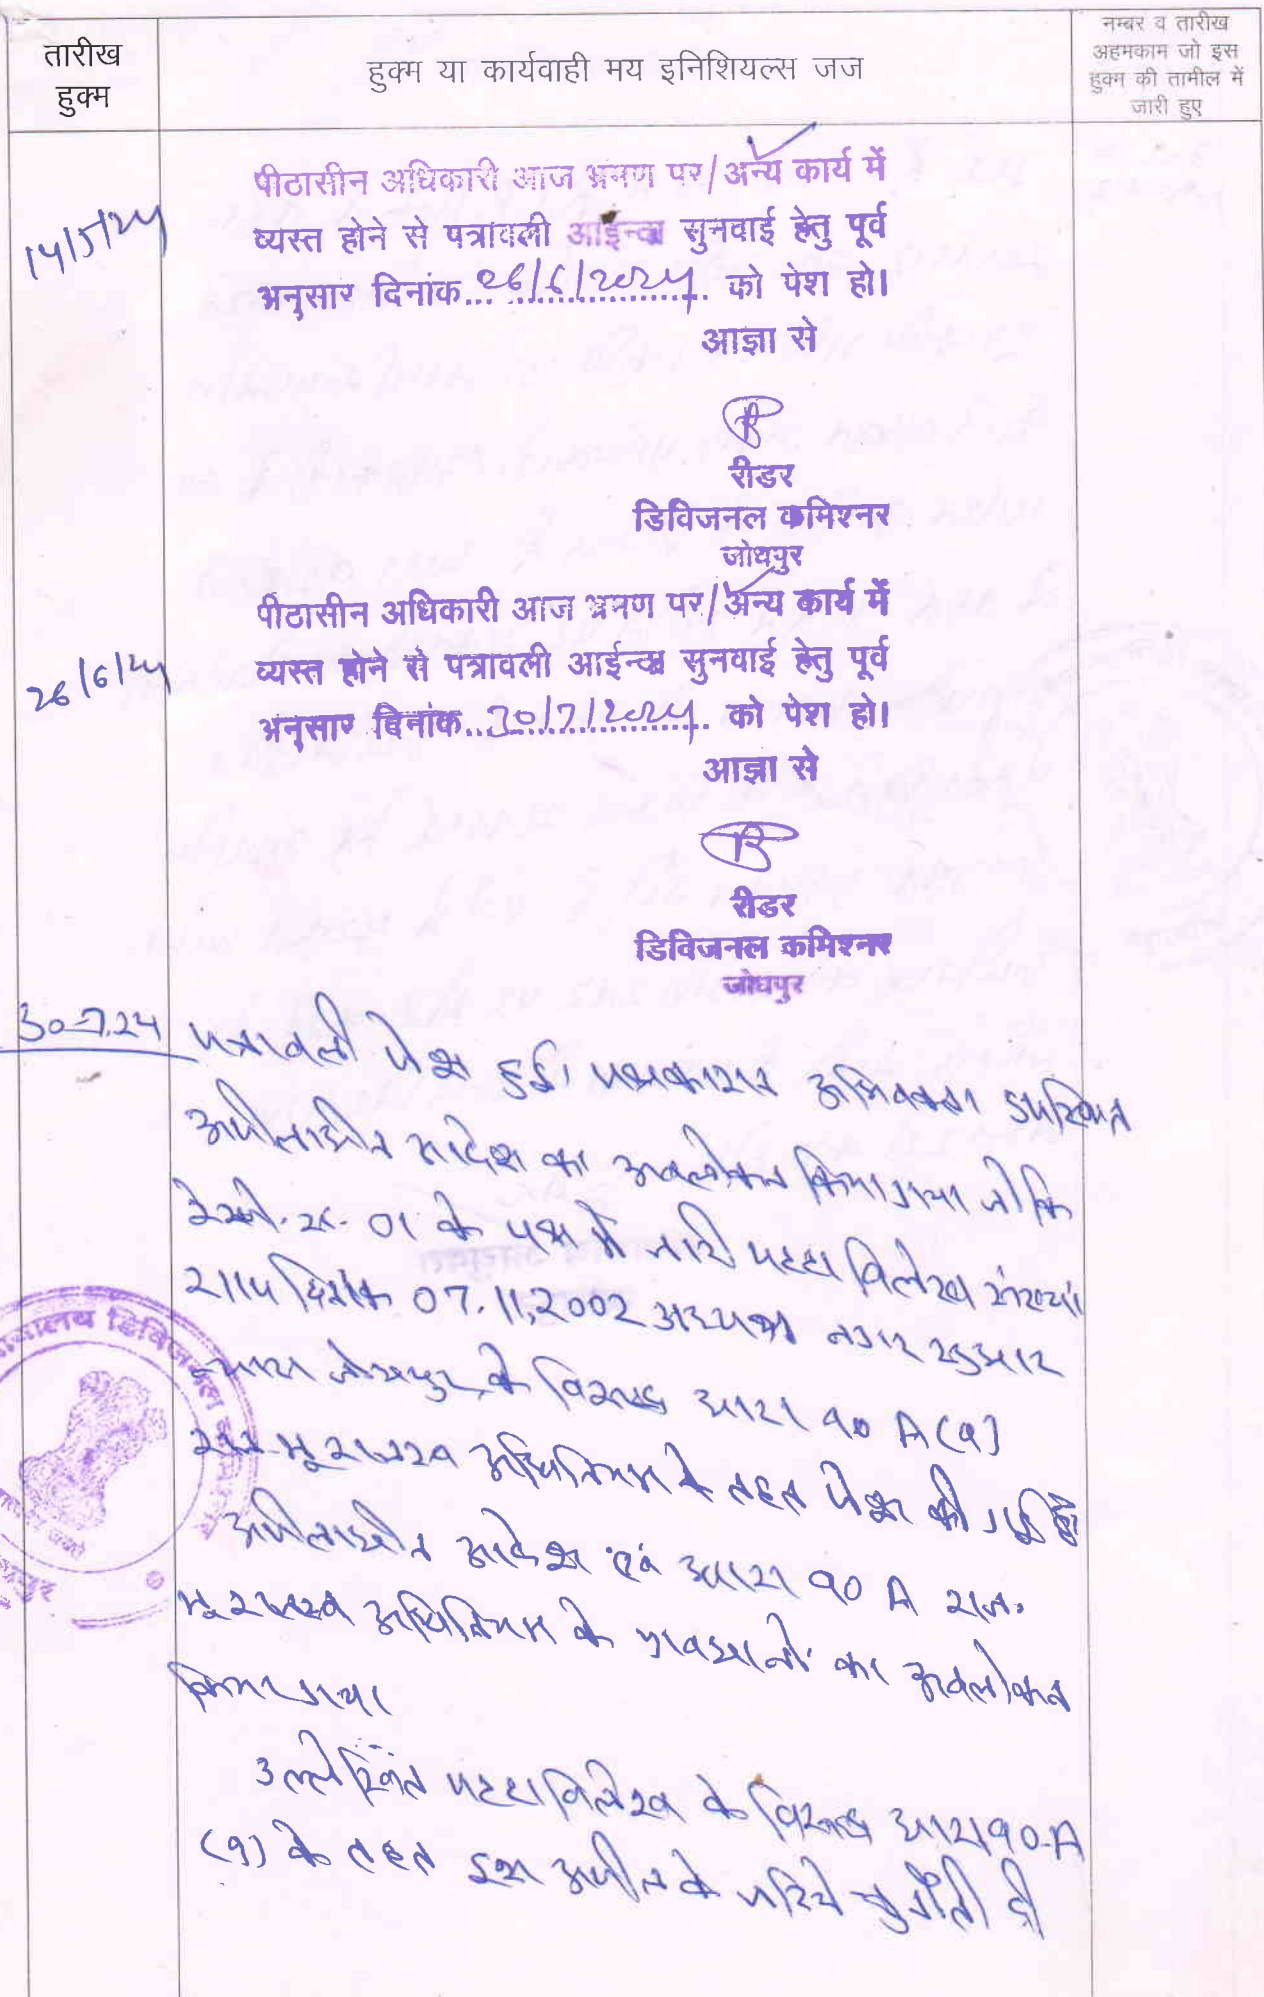 तारीख
हुक्म
हुक्म या कार्यवाही मय इनिशियल्स जज
नम्बर व तारीख
अहमकाम जो इस
हुक्म की तामील में
जारी हुए
14/5/24
पीठासीन अधिकारी आज भ्रमण पर/अन्य कार्य में
व्यस्त होने से पत्रावली आईन्दा सुनवाई हेतु पूर्व
अनुसार दिनांक... 26/6/2024 को पेश हो।
आज्ञा से
रीडर
डिविजनल कमिश्नर
जोधपुर
26/6/24
पीठासीन अधिकारी आज भ्रमण पर/अन्य कार्य में
व्यस्त होने से पत्रावली आईन्दा सुनवाई हेतु पूर्व
अनुसार दिनांक... 30/7/2024 को पेश हो।
आज्ञा से
रीडर
डिविजनल कमिश्नर
जोधपुर
30.7.24
पत्रावली पेश हुई। पक्षकारान अभिभाषक उपस्थित
अपीलाधीन आदेश का अवलोकन किया गया जो कि
रेस्पो. सं. 01 के पक्ष में जारी पट्टा विलेख संख्या
दिनांक 07.11.2002 अध्यक्ष नगर सुधार
न्यास जोधपुर के विरूद्ध धारा 90 A (9)
राज. भू राजस्व अधिनियम के तहत पेश की गई है।
अपीलाधीन आदेश एवं धारा 90 A राज.
भू राजस्व अधिनियम के प्रावधानों का अवलोकन
किया गया।
उल्लेखित पट्टा विलेख के विरूद्ध धारा 90-A
(9) के तहत इस अपील के जरिये चुनौती दी
डिविजनल